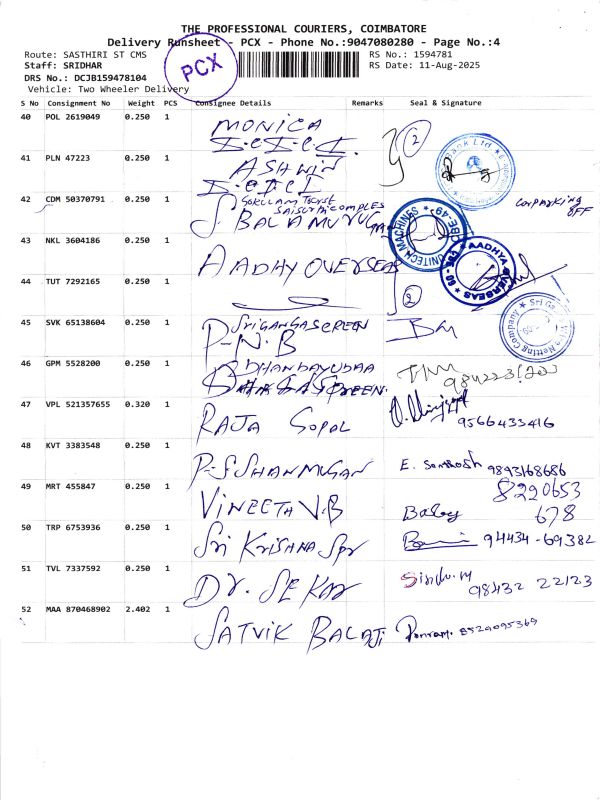 THE PROFESSIONAL COURIERS, COIMBATORE
Delivery Runsheet - PCX - Phone No.:9047080280 - Page No.:4
Route: SASTHIRI ST CMS
RS No.: 1594781
Staff: SRIDHAR
RS Date: 11-Aug-2025
PCX
DRS No.: DCJB159478104
Vehicle: Two Wheeler Delivery
S No Consignment No Weight PCS Consignee Details Remarks Seal & Signature
40 POL 2619049 0.250 1 MONICA
I.C.I.C.I. 2
41 PLN 47223 0.250 1 ASHWIN
I.C.I.C.I
42 CDM 50370791 0.250 1 Gokulam
S. BALAMURUGAN
UNITECH MACHINES * CBE-49 *
Carparking
OFF
43 NKL 3604186 0.250 1 AADHY OVERSEAS
AADHYA OVERSEAS
44 TUT 7292165 0.250 1 2
45 SVK 65138604 0.250 1 SRIGANGASCREEN
P.N.B
Netting Company
46 GPM 5528200 0.250 1 DHANDAYUDAA
47 VPL 521357655 0.320 1 RAJA GOPAL
9566433416
48 KVT 3383548 0.250 1 P.S SHANMUGAN E. Santhosh 9893168686
49 MRT 455847 0.250 1 VINEETA V.B 8220653
678
50 TRP 6753936 0.250 1 Sri KRISHNA Spr 94434-69382
51 TVL 7337592 0.250 1 Dr. SEKAR
98432 22123
52 MAA 870468902 2.402 1 SATVIK BALAJI 8529095369